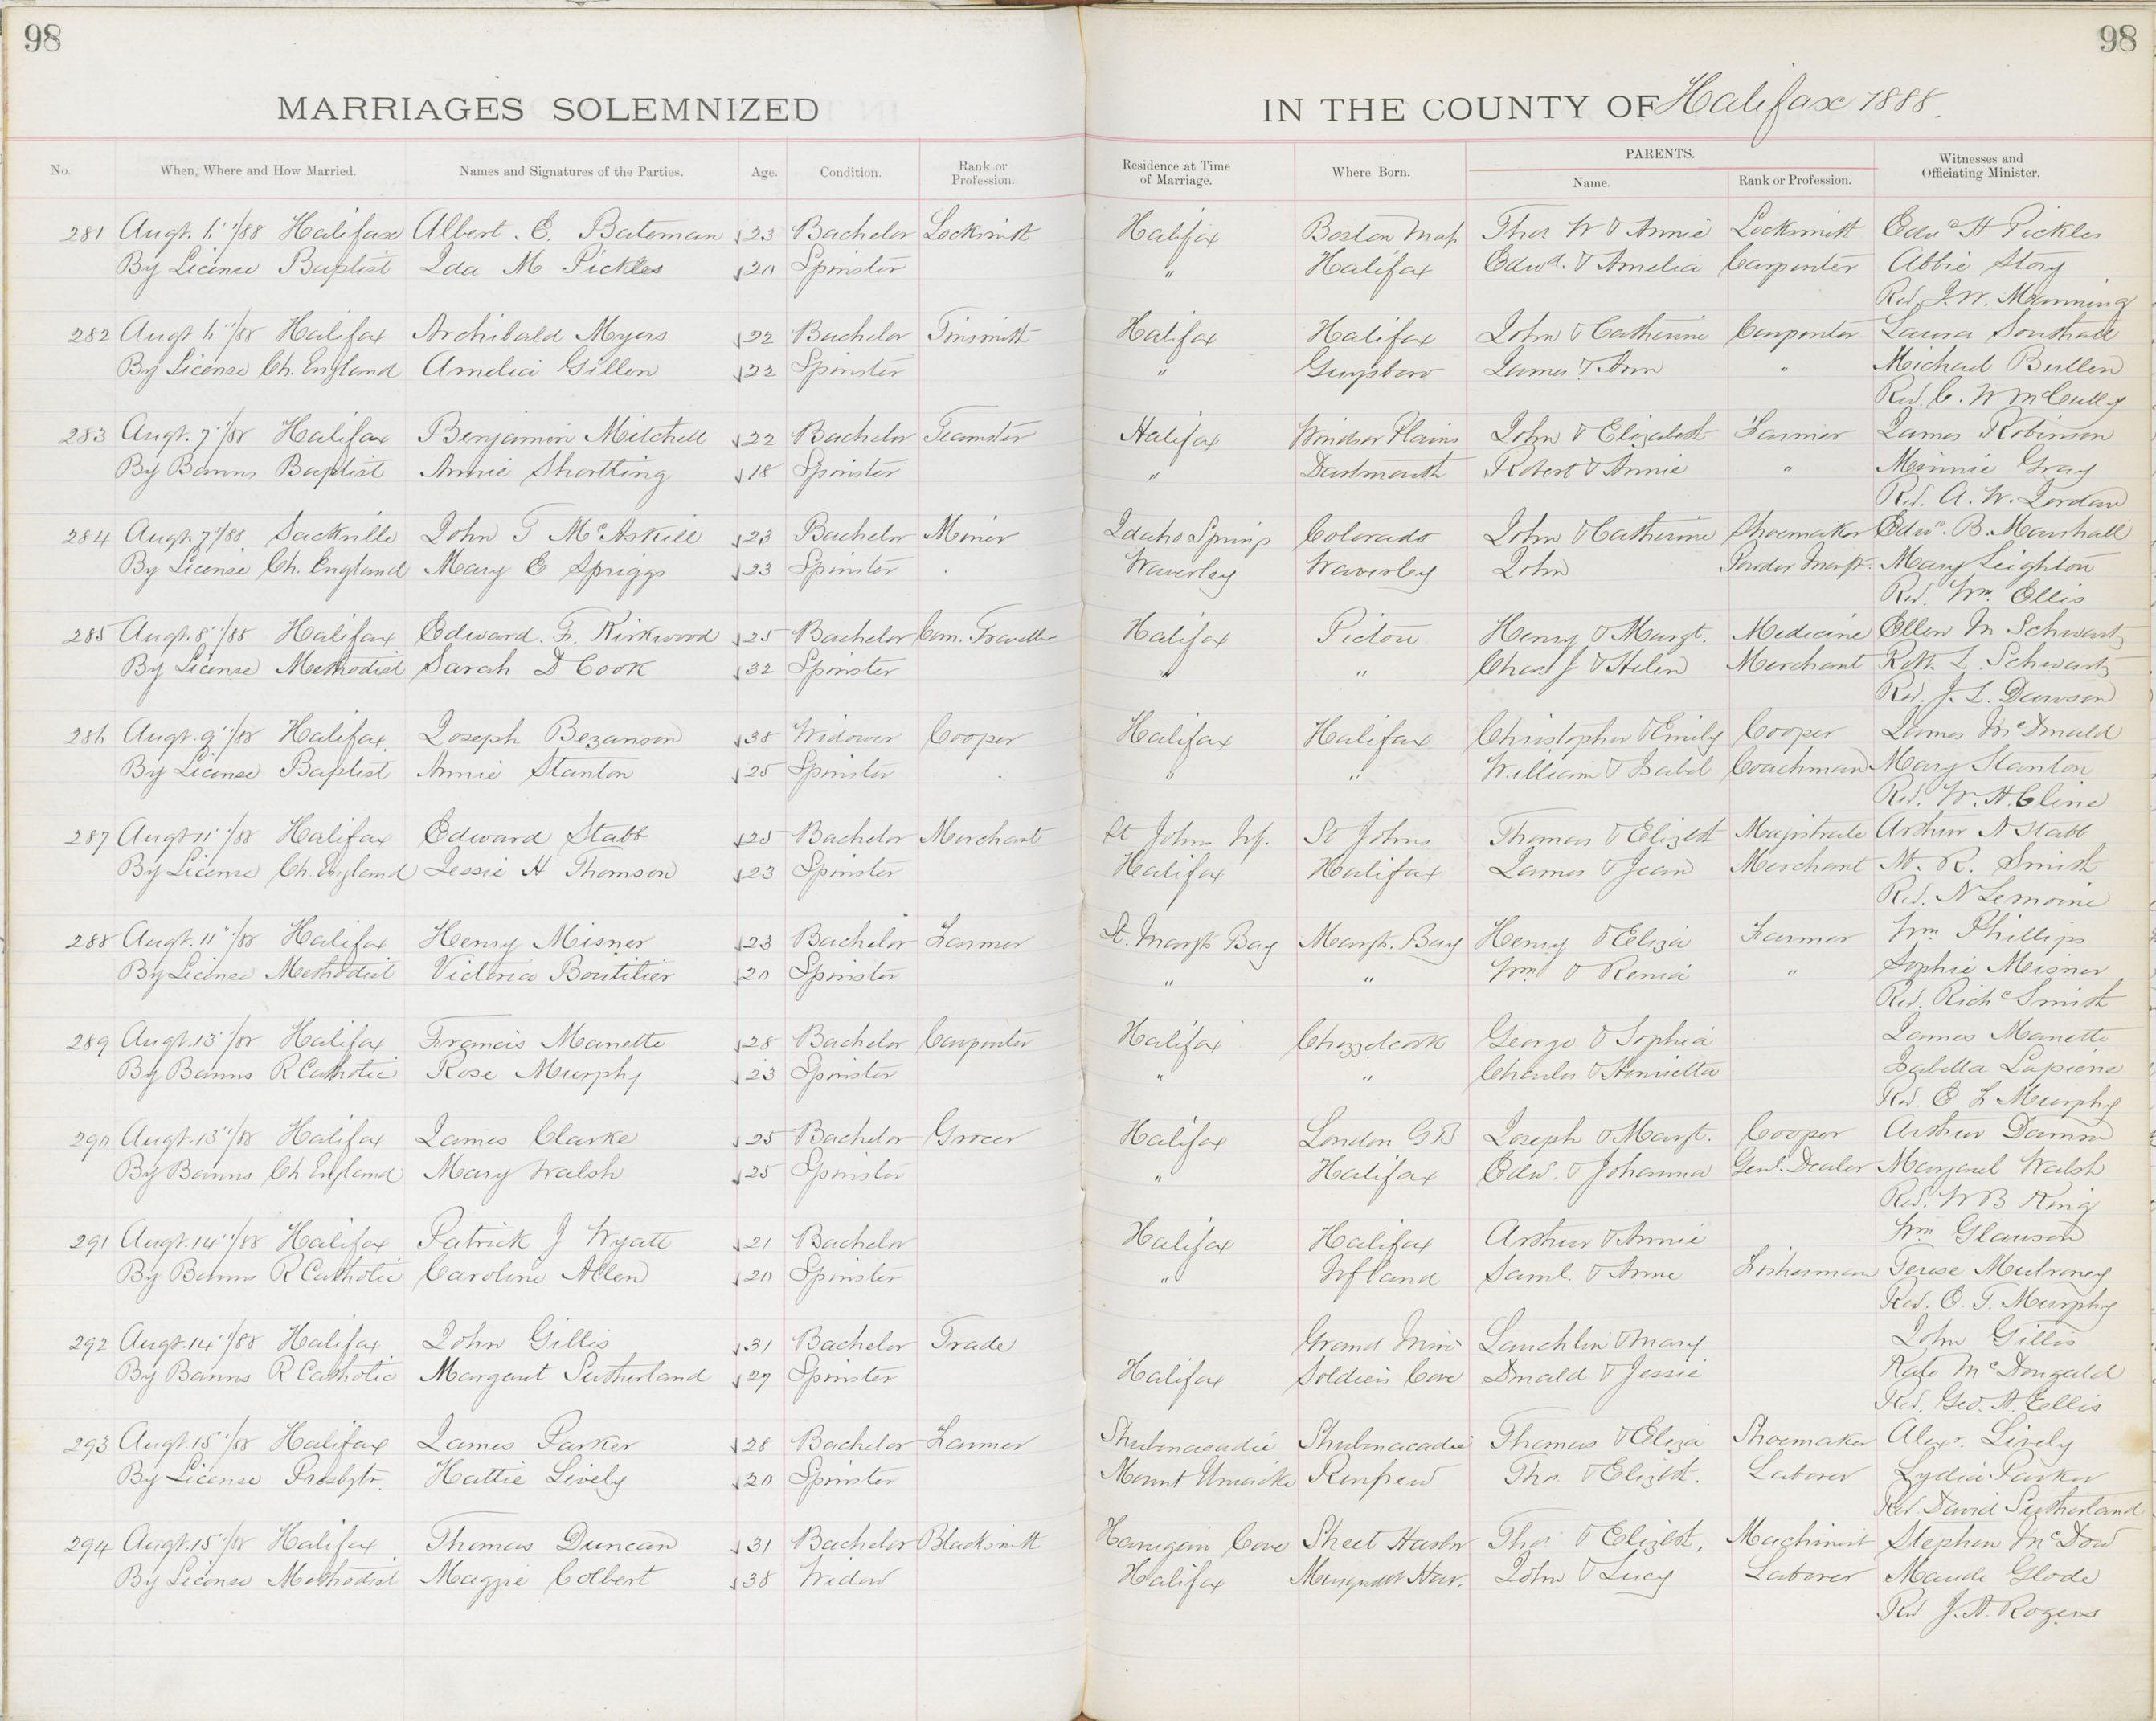 98
98
MARRIAGES SOLEMNIZED
IN THE COUNTY OF Halifax 1888.
No. When, Where and How Married. Names and Signatures of the Parties. Age. Condition. Rank or Profession. Residence at Time of Marriage. Where Born. PARENTS. Name. Rank or Profession. Witnesses and Officiating Minister.
281 Augt. 6"/88 Halifax Albert. E. Bateman 23 Bachelor Locksmith Halifax Boston Mass Thos W & Annie Locksmith Edwd H Pickles
By License Baptist Ida M Pickles 20 Spinster " Halifax Edwd. & Amelia Carpenter Abbie Story
Rev. J. W. Manning
282 Augt 6"/88 Halifax Archibald Myers 22 Bachelor Tinsmith Halifax Halifax John & Catherine Carpenter Laura Southall
By License Ch. England Amelia Gillen 22 Spinster " Guysboro James & Ann " Michael Bullen
Rev. C. W McCully
283 Augt. 7"/88 Halifax Benjamin Mitchell 22 Bachelor Teamster Halifax Windsor Plains John & Elizabeth Farmer James Robinson
By Banns Baptist Annie Shortting 18 Spinster " Dartmouth Robert & Annie " Minnie Gray
Rev. A. W. Jordan
284 Augt. 7"/88 Sackville John T McAskill 23 Bachelor Miner Idaho Springs Colorado John & Catherine Shoemaker Edwd. B. Marshall
By License Ch. England Mary E Spriggs 23 Spinster Waverley Waverley John Powder Manft. Mary Leighton
Rev. Wm. Ellis
285 Augt. 8"/88 Halifax Edward. F. Kirkwood 25 Bachelor Com. Traveller Halifax Pictou Henry & Margt. Medicine Ellen M Schwartz
By License Methodist Sarah D Cook 32 Spinster " " Chas J & Helen Merchant Robt. L. Schwartz
Rev. J. L. Dawson
286 Augt. 9"/88 Halifax Joseph Bezanson 38 Widower Cooper Halifax Halifax Christopher & Emily Cooper James McDonald
By License Baptist Annie Stanton 25 Spinster " " William & Isabel Coachman Mary Stanton
Rev. W. H. Cline
287 Augt 11"/88 Halifax Edward Stabb 25 Bachelor Merchant St Johns Nf. St Johns Thomas & Elizbt Magistrate Arthur N Stabb
By License Ch. England Jessie H Thomson 23 Spinster Halifax Halifax James & Jean Merchant R. Smith
Rev. N Lemoine
288 Augt. 11"/88 Halifax Henry Misner 23 Bachelor Farmer St. Margts Bay Margts. Bay Henry & Eliza Farmer Wm Phillips
By License Methodist Victoria Boutilier 20 Spinster " " Wm & Renia " Sophie Misner
Rev. Richd Smith
289 Augt. 13"/88 Halifax Francis Manette 28 Bachelor Carpenter Halifax Chezzetcook George & Sophia James Manette
By Banns R Catholic Rose Murphy 23 Spinster " " Charles & Henrietta Isabella Lapierre
Rev. E F Murphy
290 Augt. 13"/88 Halifax James Clarke 25 Bachelor Grocer Halifax London GB Joseph & Margt. Cooper Arthur Damm
By Banns Ch England Mary Walsh 25 Spinster " Halifax Edw. & Johanna Genl. Dealer Margaret Walsh
Rev. W B King
291 Augt. 14"/88 Halifax Patrick J Wyatt 21 Bachelor Halifax Halifax Arthur & Annie Wm Glawson
By Banns R Catholic Caroline Allen 20 Spinster " Nfland Saml. & Anne Fisherman Terese Mulroney
Rev. E. F. Murphy
292 Augt. 14"/88 Halifax John Gillis 31 Bachelor Trade Grand Mira Lauchlin & Mary John Gillis
By Banns R Catholic Margaret Sutherland 27 Spinster Halifax Soldiers Cove Donald & Jessie Kate McDougald
Rev. Geo. A. Ellis
293 Augt. 15"/88 Halifax James Parker 28 Bachelor Farmer Shubenacadie Shubenacadie Thomas & Eliza Shoemaker Alexr. Lively
By License Presbytr. Hattie Lively 20 Spinster Mount Uniacke Renfrew Tho. & Elizbt. Laborer Lydia Parker
Rev David Sutherland
294 Augt. 15"/88 Halifax Thomas Duncan 31 Bachelor Blacksmith Harrigan Cove Sheet Harbr Thos & Elizbt. Machinist Stephen McDow
By License Methodist Maggie Colbert 38 Widow Halifax Musquodt Har. John & Lucy Laborer Maude Glode
Rev J. A. Rogers